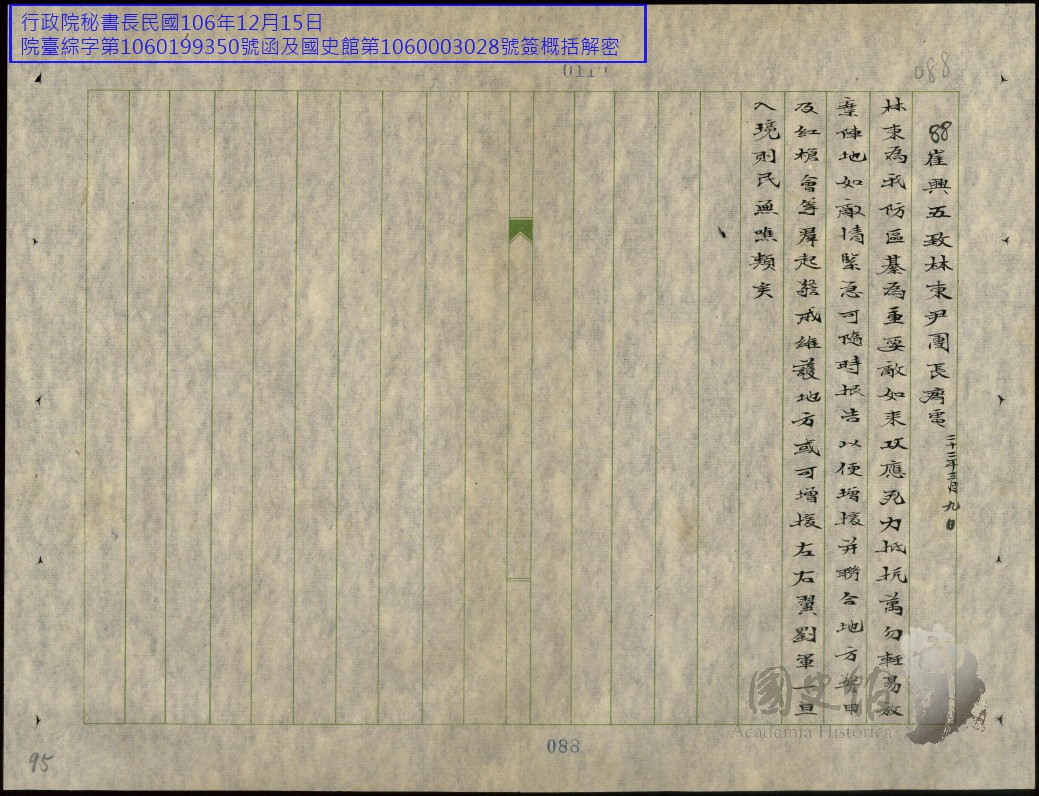 行政院秘書長民國106年12月15日
院臺綜字第1060199350號函及國史館第1060003028號簽概括解密
088
88崔興五致林東尹團長齊電 二十二年三月九日
林東為我防區綦為重要敵如來攻應死力抵抗萬勿輕易放
棄陣地如敵情緊急可隨時報告以便增援并聯合地方警甲
及紅槍會等羣起警戒維護地方或可增援左右翼劉軍一旦
入境則民無噍類矣
國史館
Academia Historica
088
95